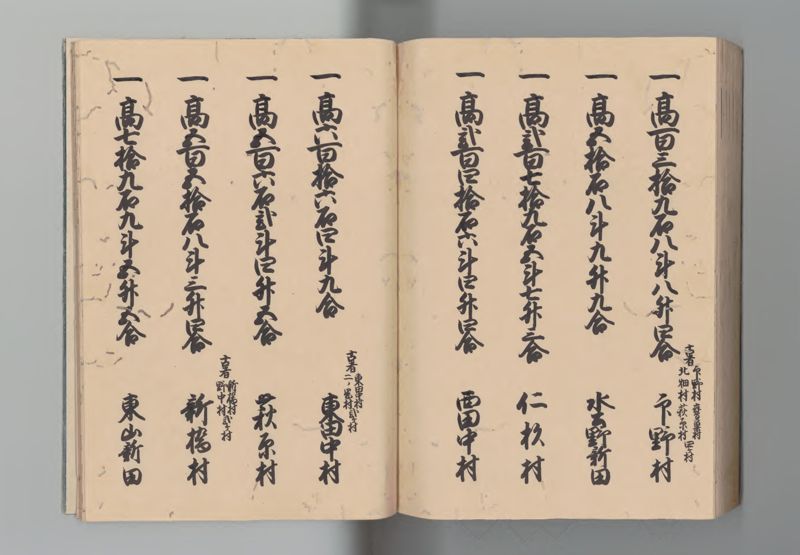 一 高百三拾九石八斗八升四合
古者 下野村 喜多黒村
北畑村 萩原村 四ヶ村
下野村
一 高五拾石八斗九升九合
水野新田
一 高弐百七拾九石五斗七升二合
仁杉村
一 高弐百四拾石六斗四升四合
西田中村
一 高六百拾六石四斗九合
古者 東田中村
二ノ黒村 弐ヶ村
東田中村
一 高五百六石弐斗四升五合
萩原村
一 高五百五拾石八斗三升四合
古者 新橋村
野中村 弐ヶ村
新橋村
一 高七拾九石九斗五升五合
東山新田